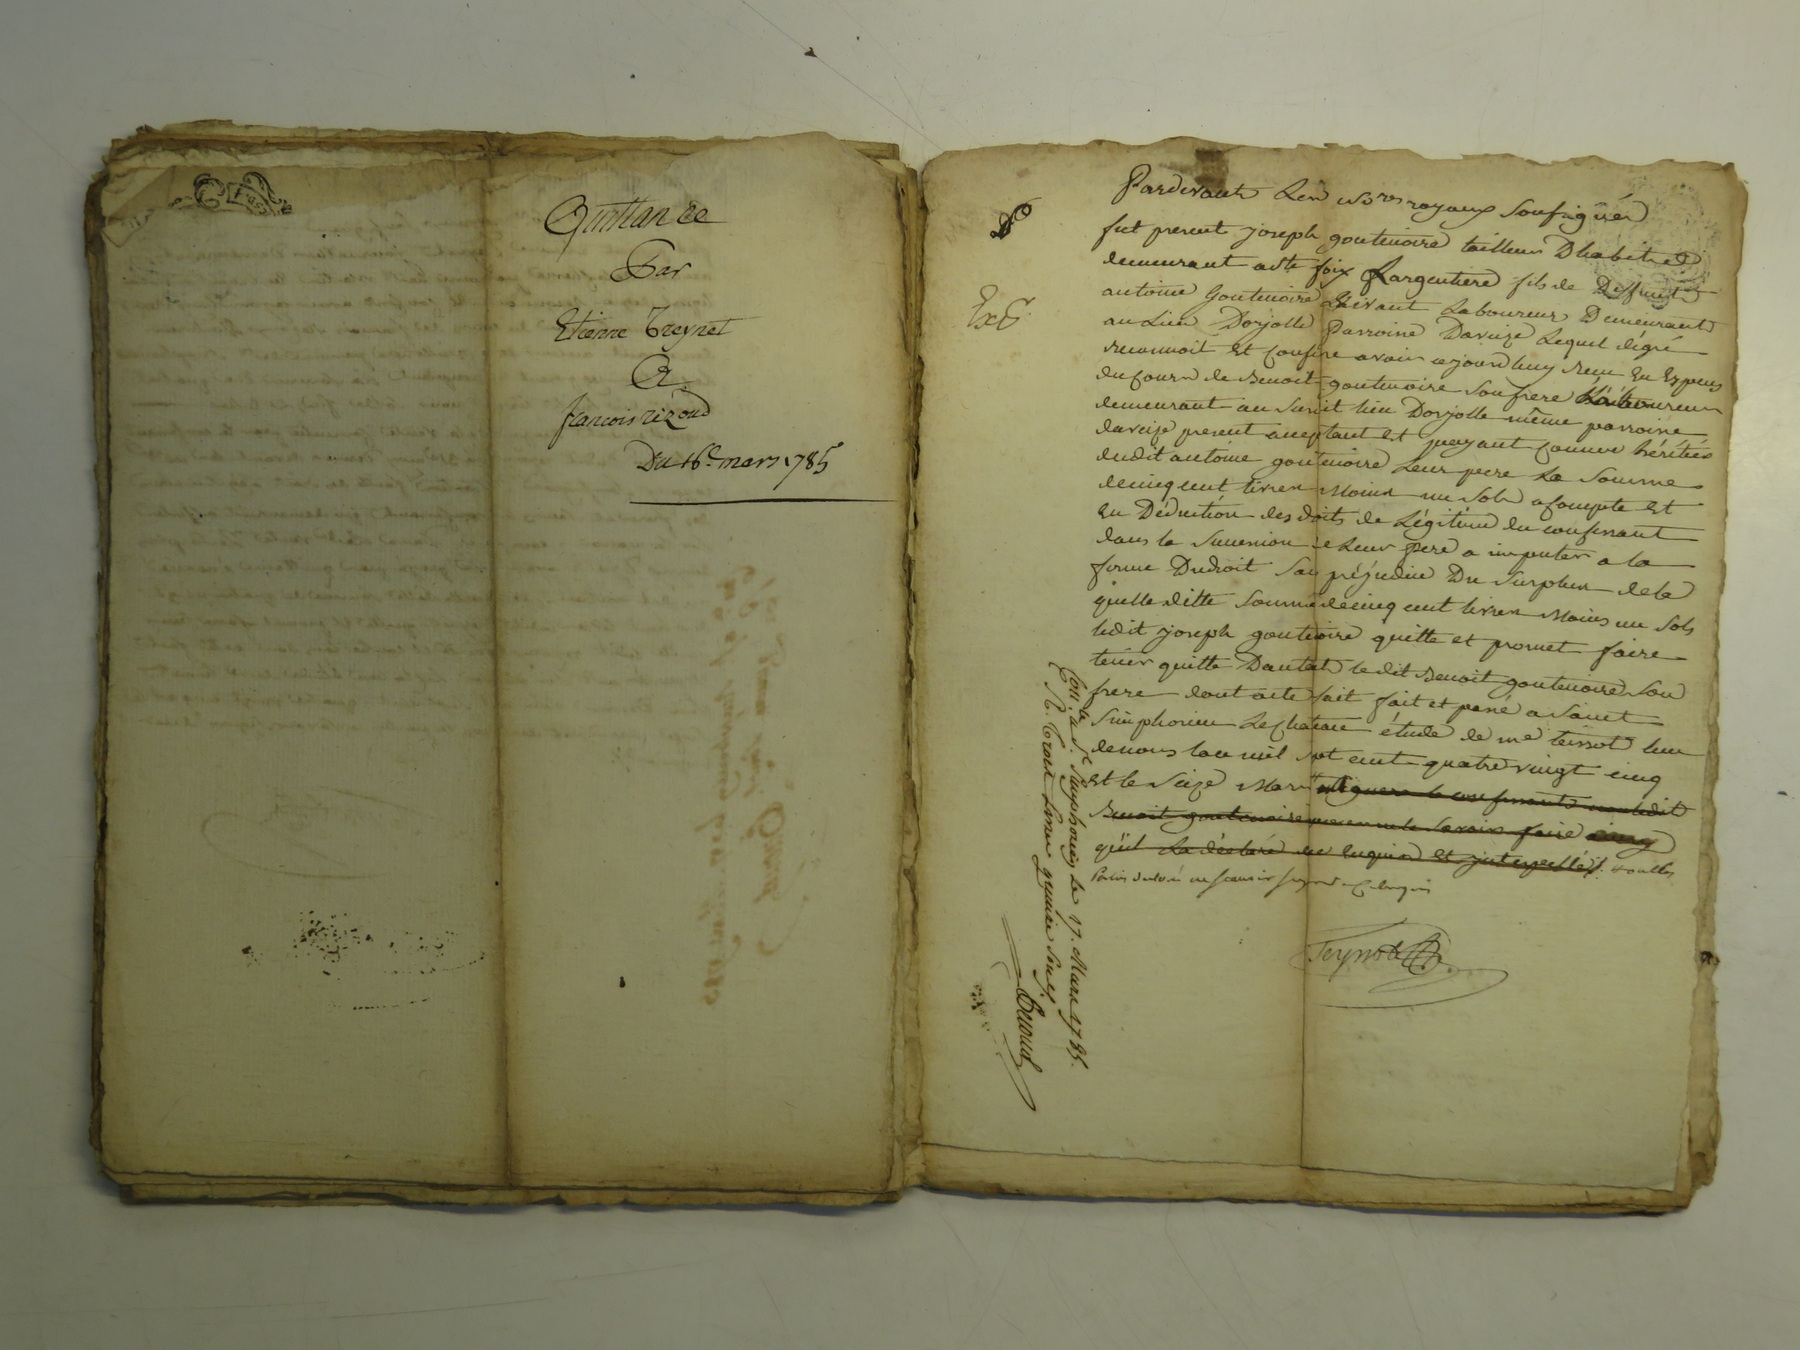 Quittance
Par
Etienne Treynet
A
françois rizoud
Du 16e mars 1785
Pardevant Les nores royaux soussignés
fut present joseph goutenoire tailleur D'habits
demeurant a Ste foix Largentiere fils de Deffunt
antoine Goutenoire vivant Laboureur Demeurant
au Lieu Dorjolle Parroisse Daveize Lequel de gré
reconnoit et confesse avoir ajourdhuy reçu en Especes
du cours de Benoit goutenoire son frere Laboureur
demeurant au susdit lieu Dorjolle même parroisse
daveize present acceptant et payant comme héritier
dudit antoine goutenoire Leur pere La Somme
de cinq cent livres Moins un sols a compte et
en Déduction des droits de Légitime du confessant
dans la succession de Leur pere a imputer a la
forme Du droit Sans préjudice Du surplus de la
quelle ditte Somme de cinq cent livres Moins un sols
ledit joseph goutenoire quitte et promet faire
tenir quitte Dautant ledit Benoit goutenoire Son
frere dont acte fait fait et passé a Saint
Simphorien Le Chateau étude de me teissot lun
de nous lan mil sept cent quatre vingt cinq
et le Seize Mars le confessant ledit
Benoit goutenoire pour ne le Savoir faire
qu'il La déclaré de Enquis et interpellé /. &
Parties
Con. lé a St. Simphorien Le 17. Mars 1785.
R.